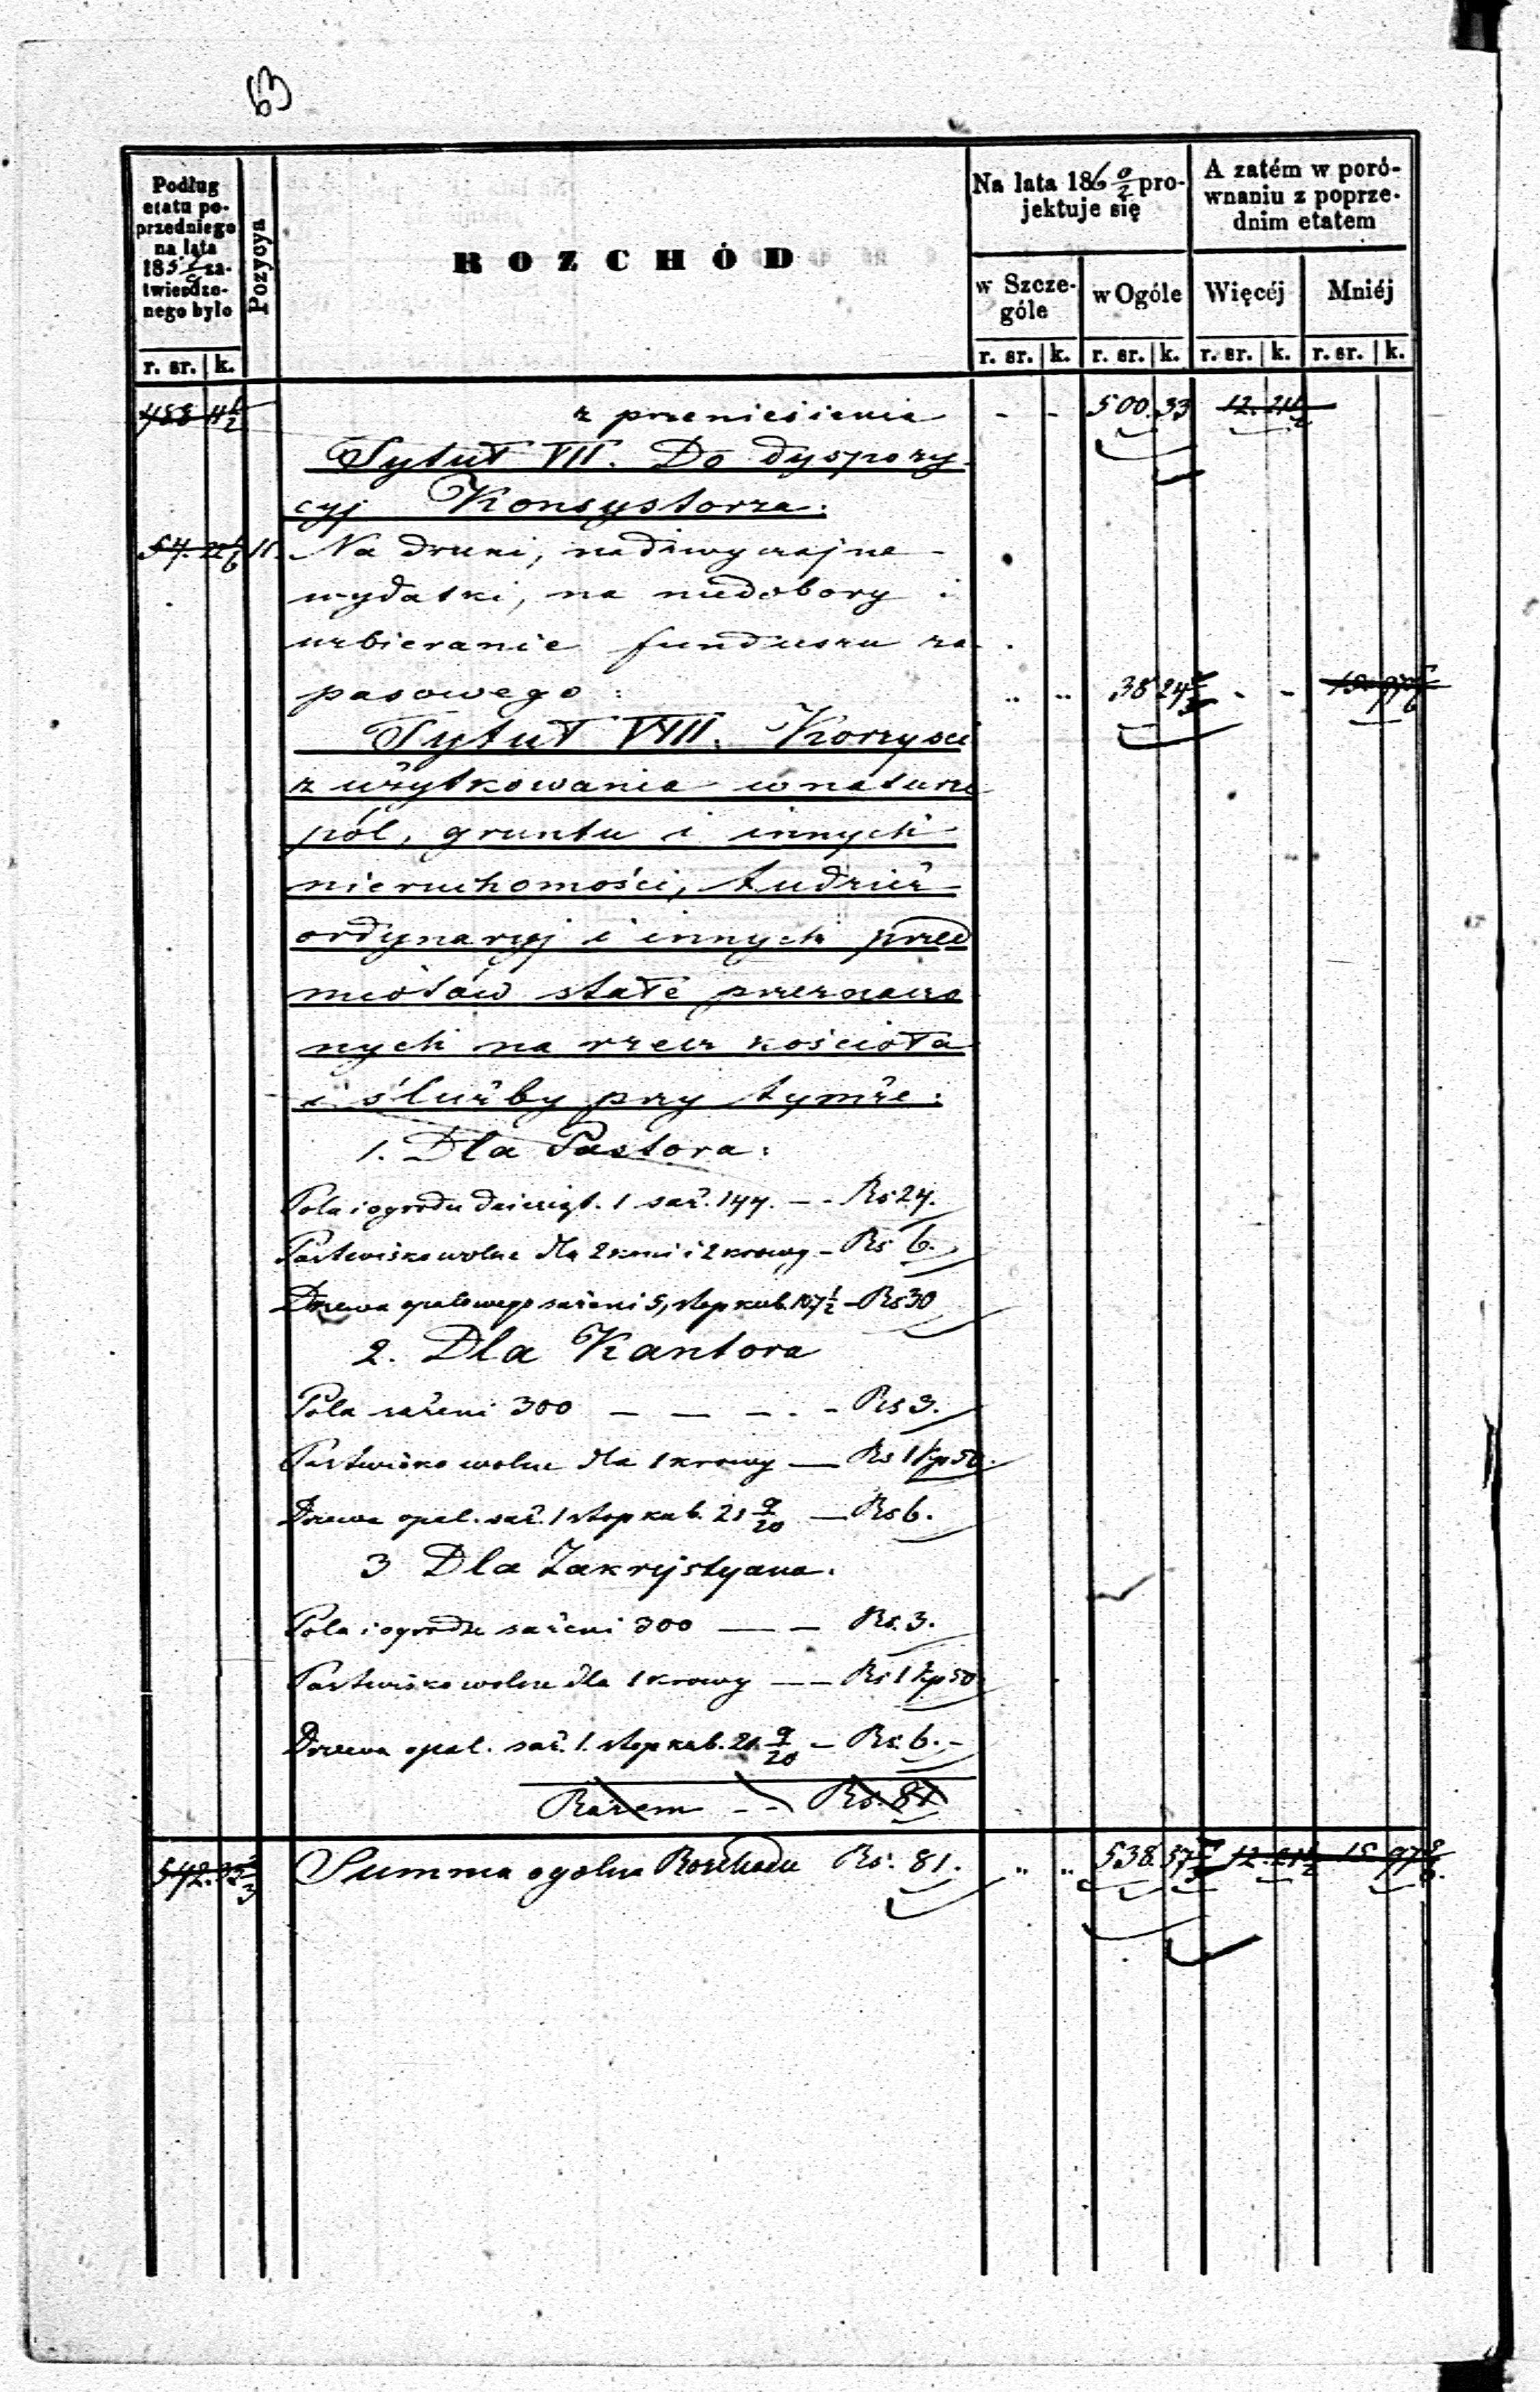 63
Podług etatu poprzedniego na lata 185 zatwierdzonego było
Pozycya
ROZCHÓD
Na lata 186 0/2 projektuje się
A zatém w porównaniu z poprzednim etatem
w Szczególe
w Ogóle
Więcéj
Mniéj
r. sr. k. r. sr. k. r. sr. k. r. sr. k. r. sr. k.
488 11 1/2 z przeniesienia - - 500. 33 12. 21 1/2
Tytuł VII. Do dyspozy-
cyj Konsystorza.
54. 11. Na druki, nadzwyczajne
wydatki, na niedobory i
uzbieranie funduszu za-
pasowego: " " 38 24 - -
Tytuł VIII. Korzyści
z użytkowania w naturze
pól, gruntu i innych
nieruchomości, tudzież
ordynaryj i innych przed
miotów stałe przeznaczo
nych na rzecz kościoła
i służby przy tymże:
1. Dla Pastora:
Pola i ogrodu dziesiąt. 1 saż. 144. - - Rs 24.
Pastwisko wolne dla 2 koni i 2 krowy - Rs 6.
Drzewa opałowego sażeni 5, stop kub. 107 1/2 - Rs 30
2. Dla Kantora
Pola sażeni 300 - - - . - Rs 3.
Pastwisko wolne dla 1 krowy - Rs 1 kp 50.
Drzewa opał. saż. 1 stop kub. 21 9/20 - Rs 6.
3 Dla Zakrystyana.
Pola i ogrodu sażeni 300 - - Rs. 3.
Pastwisko wolne dla 1 krowy - - Rs 1 kp 50
Drzewa opał. saż. 1. stop kub. 21. 9/20 - Rs. 6. -
Razem - - Rs. 81
542. Summa ogolna Rozchodu Rs. 81. " " 538. 57 12. 21 1/2 15 97